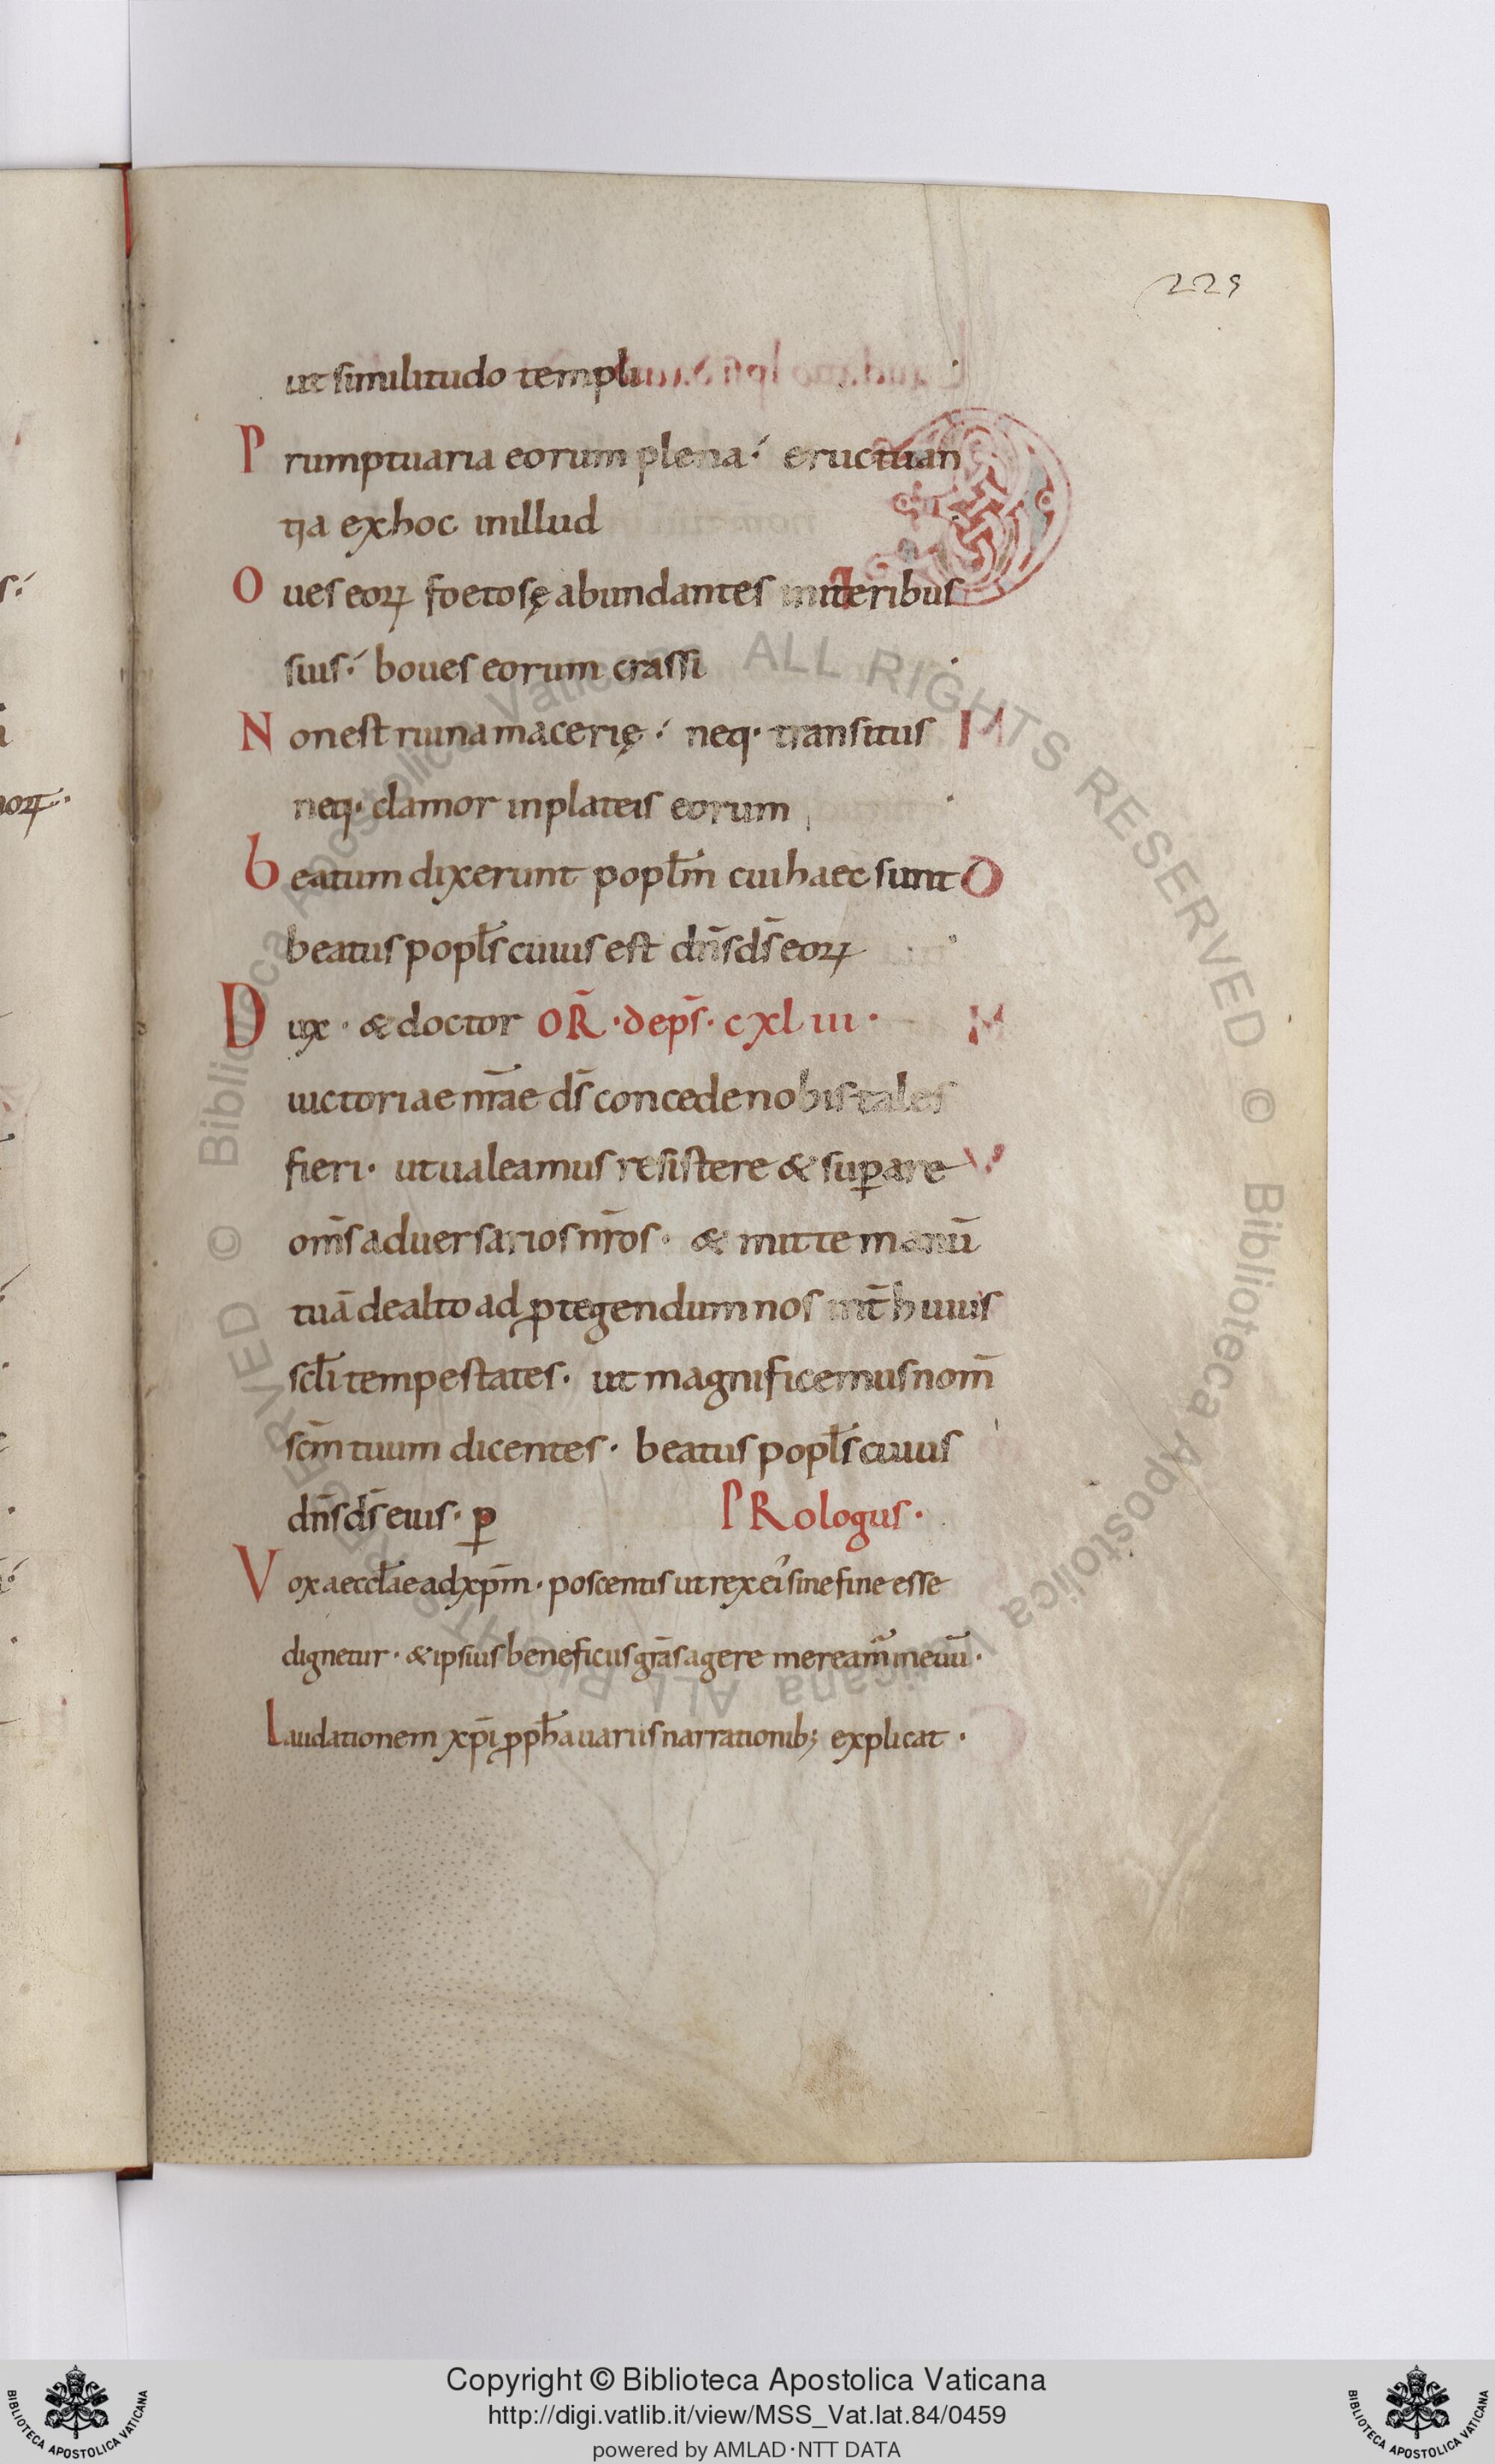 229
ut similitudo templi
Prumptuaria eorum plena ⁊ eructuan
tia ex hoc inillud
Oues eoꝝ foetosę abundantes initeribus
suis ⁊ boues eorum crassi
Non est ruina macerię ⁊ neq· transitus
neq· clamor inplateis eorum
beatum dixerunt popl̄m cui haec sunt
beatus popl̄s cuius est dn̄s ds̄ eoꝝ
Dux · & doctor OR̄ · de ps̄ · cxliii ·
uictoriae nr̄ae ds̄ concede nobis tales
fieri · ut ualeamus resistere & suꝑare
om̄s aduersarios nr̄os · & mitte manū
tuā de alto ad ꝓtegendum nos int̄ huius
scl̄i tempestates · ut magnificemus nom̄
sc̄m tuum dicentes · beatus popl̄s cuius
dn̄s ds̄ eius · ꝑ
PRologus ·
Vox aeccl̄ae ad xp̄m · poscentis ut rex ei sine fine esse
dignetur · & ipsius beneficus grās agere mereamᷣ in euū ·
Laudationem xp̄i ꝓph̄a uariis narrationib; explicat ·
Copyright © Biblioteca Apostolica Vaticana
http://digi.vatlib.it/view/MSS_Vat.lat.84/0459
powered by AMLAD·NTT DATA
BIBLIOTECA APOSTOLICA VATICANA
BIBLIOTECA APOSTOLICA VATICANA
© Biblioteca Apostolica Vaticana ALL RIGHTS RESERVED © Biblioteca Apostolica Vaticana ALL RIGHTS RESERVED